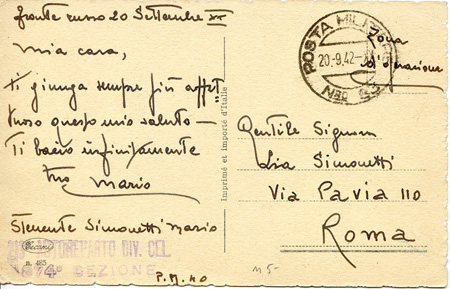 fronte russo 20 Settembre XX
Mia cara,
Ti giunga sempre più affet-
tuoso questo mio saluto —
Ti bacio infinitamente
Tuo Mario
STenente Simonetti Mario
AUTOREPARTO DIV. CEL.
SEZIONE
P.M. 40
n. 485
Imprimé et importé d'Italie
POSTA MILITARE
20.-9.42-
Zona
di operazione
Gentile Signora
Lia Simonetti
Via Pavia 110
Roma